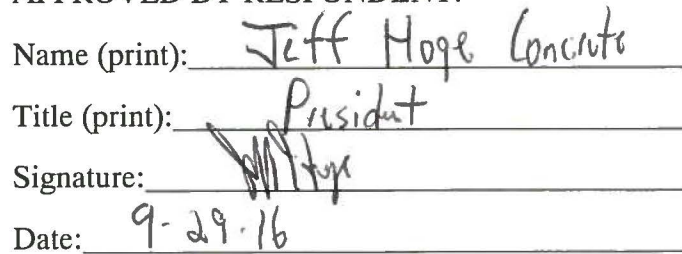 APPROVED BY RESPONDENT:
Name (print): Jeff Hoge Concrete
Title (print): President
Signature: Hoge
Date: 9-29-16